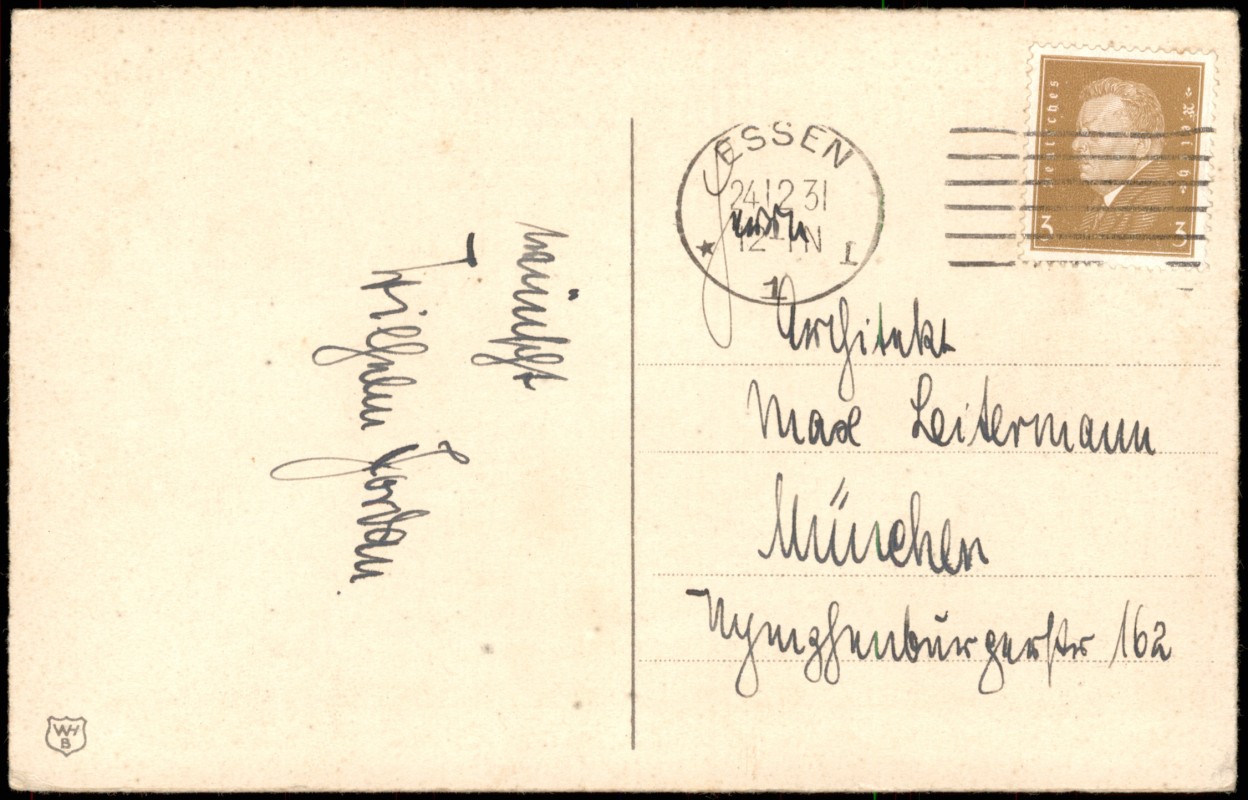 wünscht
Wilhelm Jordan
WH
B
ESSEN
24.12.31
12-1N
1
1
Deutsches Reich
3 3
Herrn
Architekt
Max Leitermann
München
Nymphenburgerstr 162